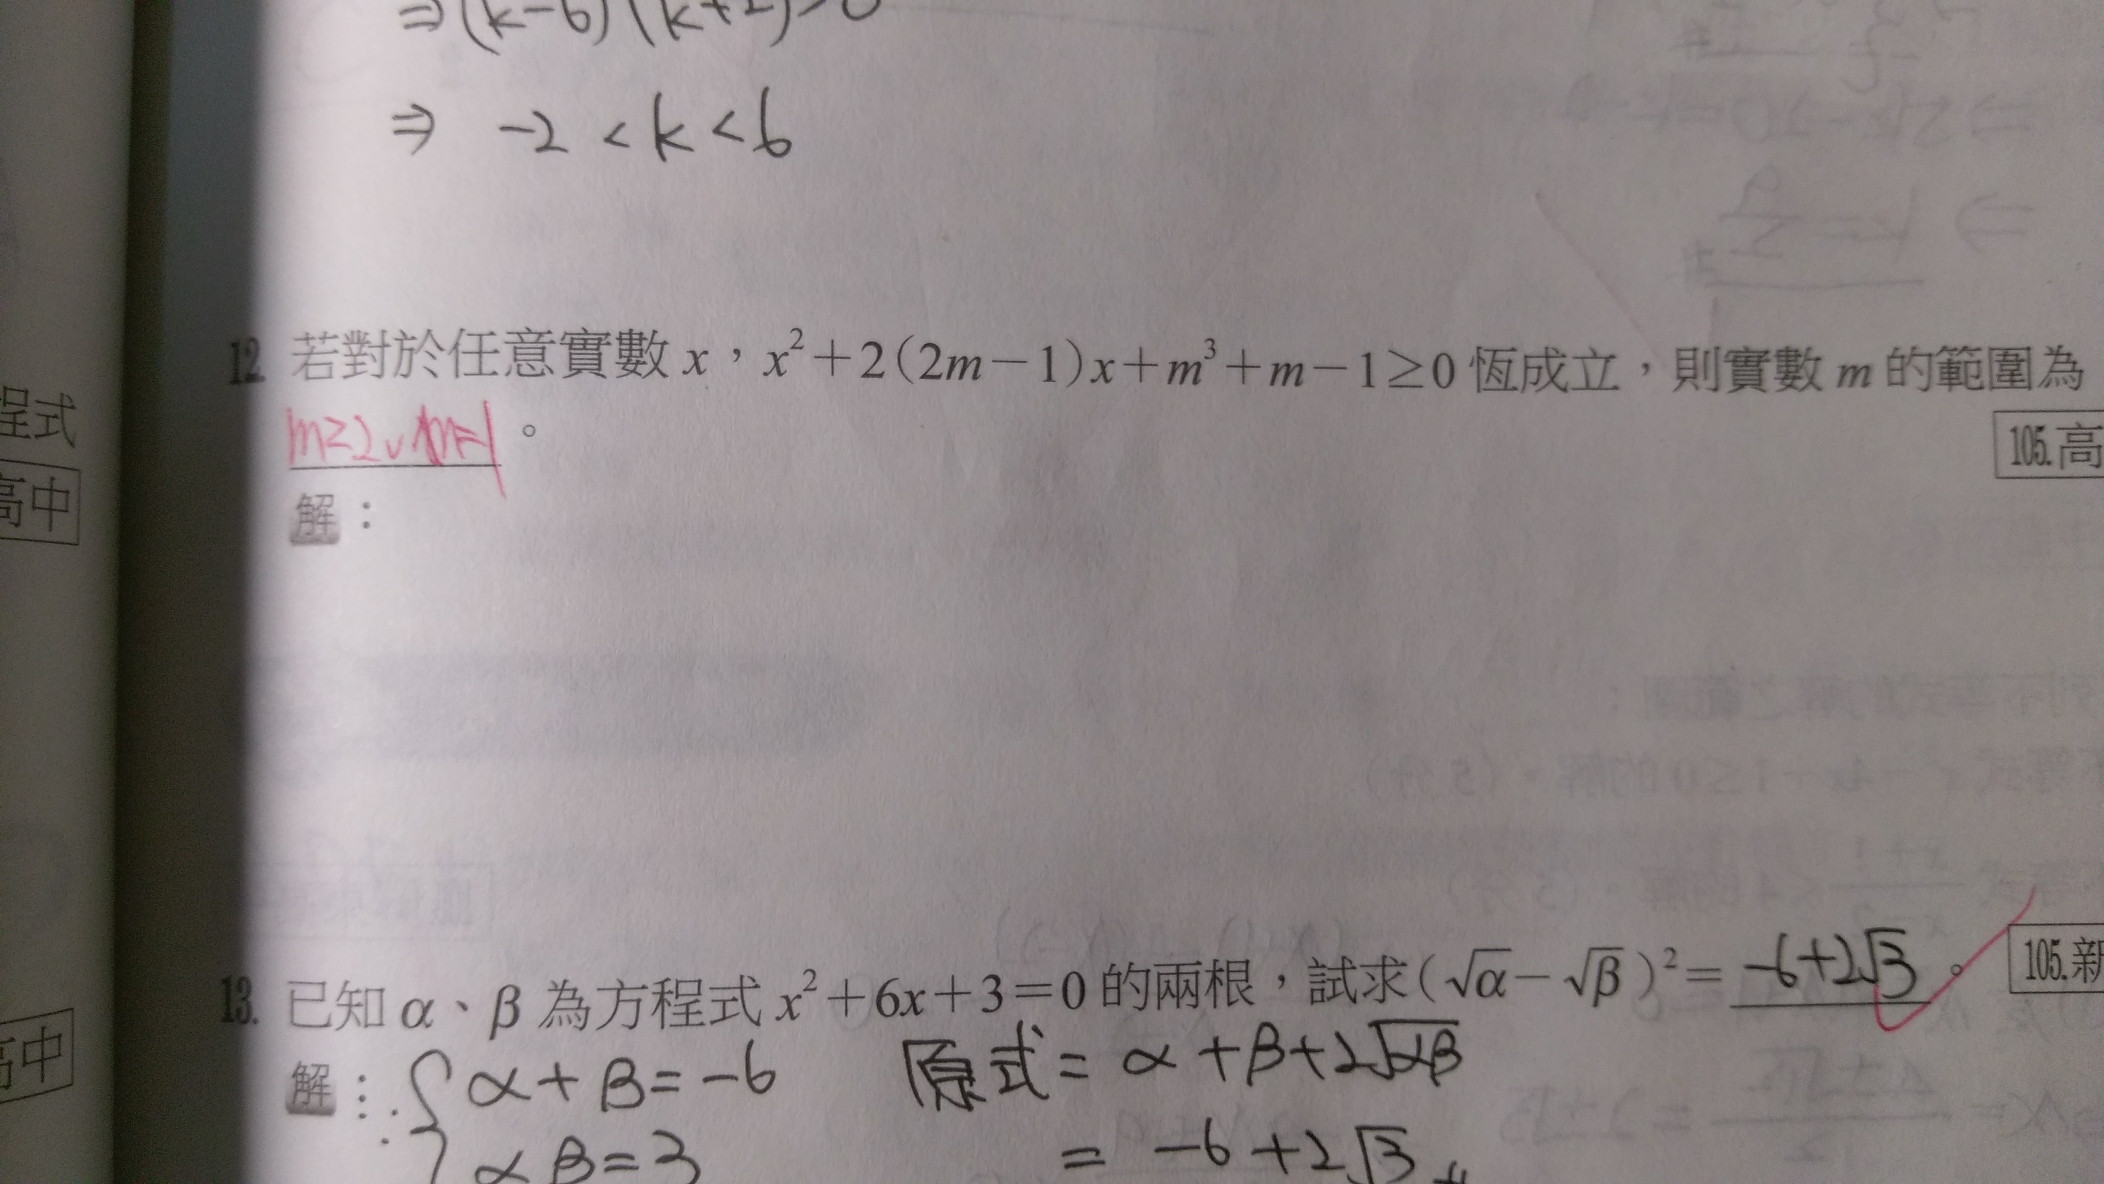 ⇒(k-6)(k+2)>0
⇒ -2 < k < 6
12. 若對於任意實數 x，x²+2(2m-1)x+m³+m-1≥0 恆成立，則實數 m 的範圍為
m≥2 ∨ m=1。
105.高
解：
程式
高中
13. 已知 α、β 為方程式 x²+6x+3=0 的兩根，試求(√α-√β)²= -6+2√3。
105.新
解：{α+β=-6
αβ=3
原式= α+β+2√αβ
= -6+2√3
高中